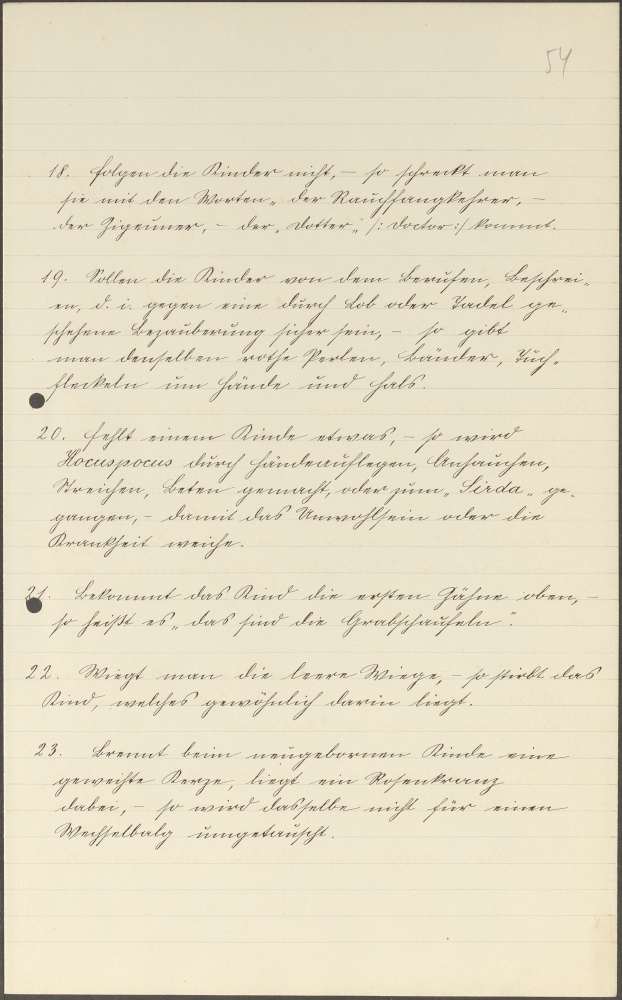 54
18. Folgen die Kinder nicht, – so schreckt man
sie mit den Worten „ der Rauchfangkehrer, –
der Zigeuner, – der „ Dotter " /: Doctor :/ kommt.
19. Sollen die Kinder von dem Berufen, Beschrei-
en, d. i. gegen eine durch Lob oder Tadel ge-
schehene Bezauberung sicher sein, – so gibt
man denselben rothe Perlen, Bänder, Tuch-
fleckeln um Hände und Hals.
20. Fehlt einem Kinde etwas, – so wird
Hocuspocus durch Händeauflegen, Anhauchen,
Streichen, Beten gemacht, oder zum „ Sirda „ ge-
gangen, – damit das Unwohlsein oder die
Krankheit weiche.
21. Bekommt das Kind die ersten Zähne oben, –
so heißt es „ das sind die Grabschaufeln ".
22. Wiegt man die leere Wiege, – so stirbt das
Kind, welches gewöhnlich darin liegt.
23. Brennt beim neugebornen Kinde eine
geweihte Kerze, liegt ein Rosenkranz
dabei, – so wird dasselbe nicht für einen
Wechselbalg umgetauscht.